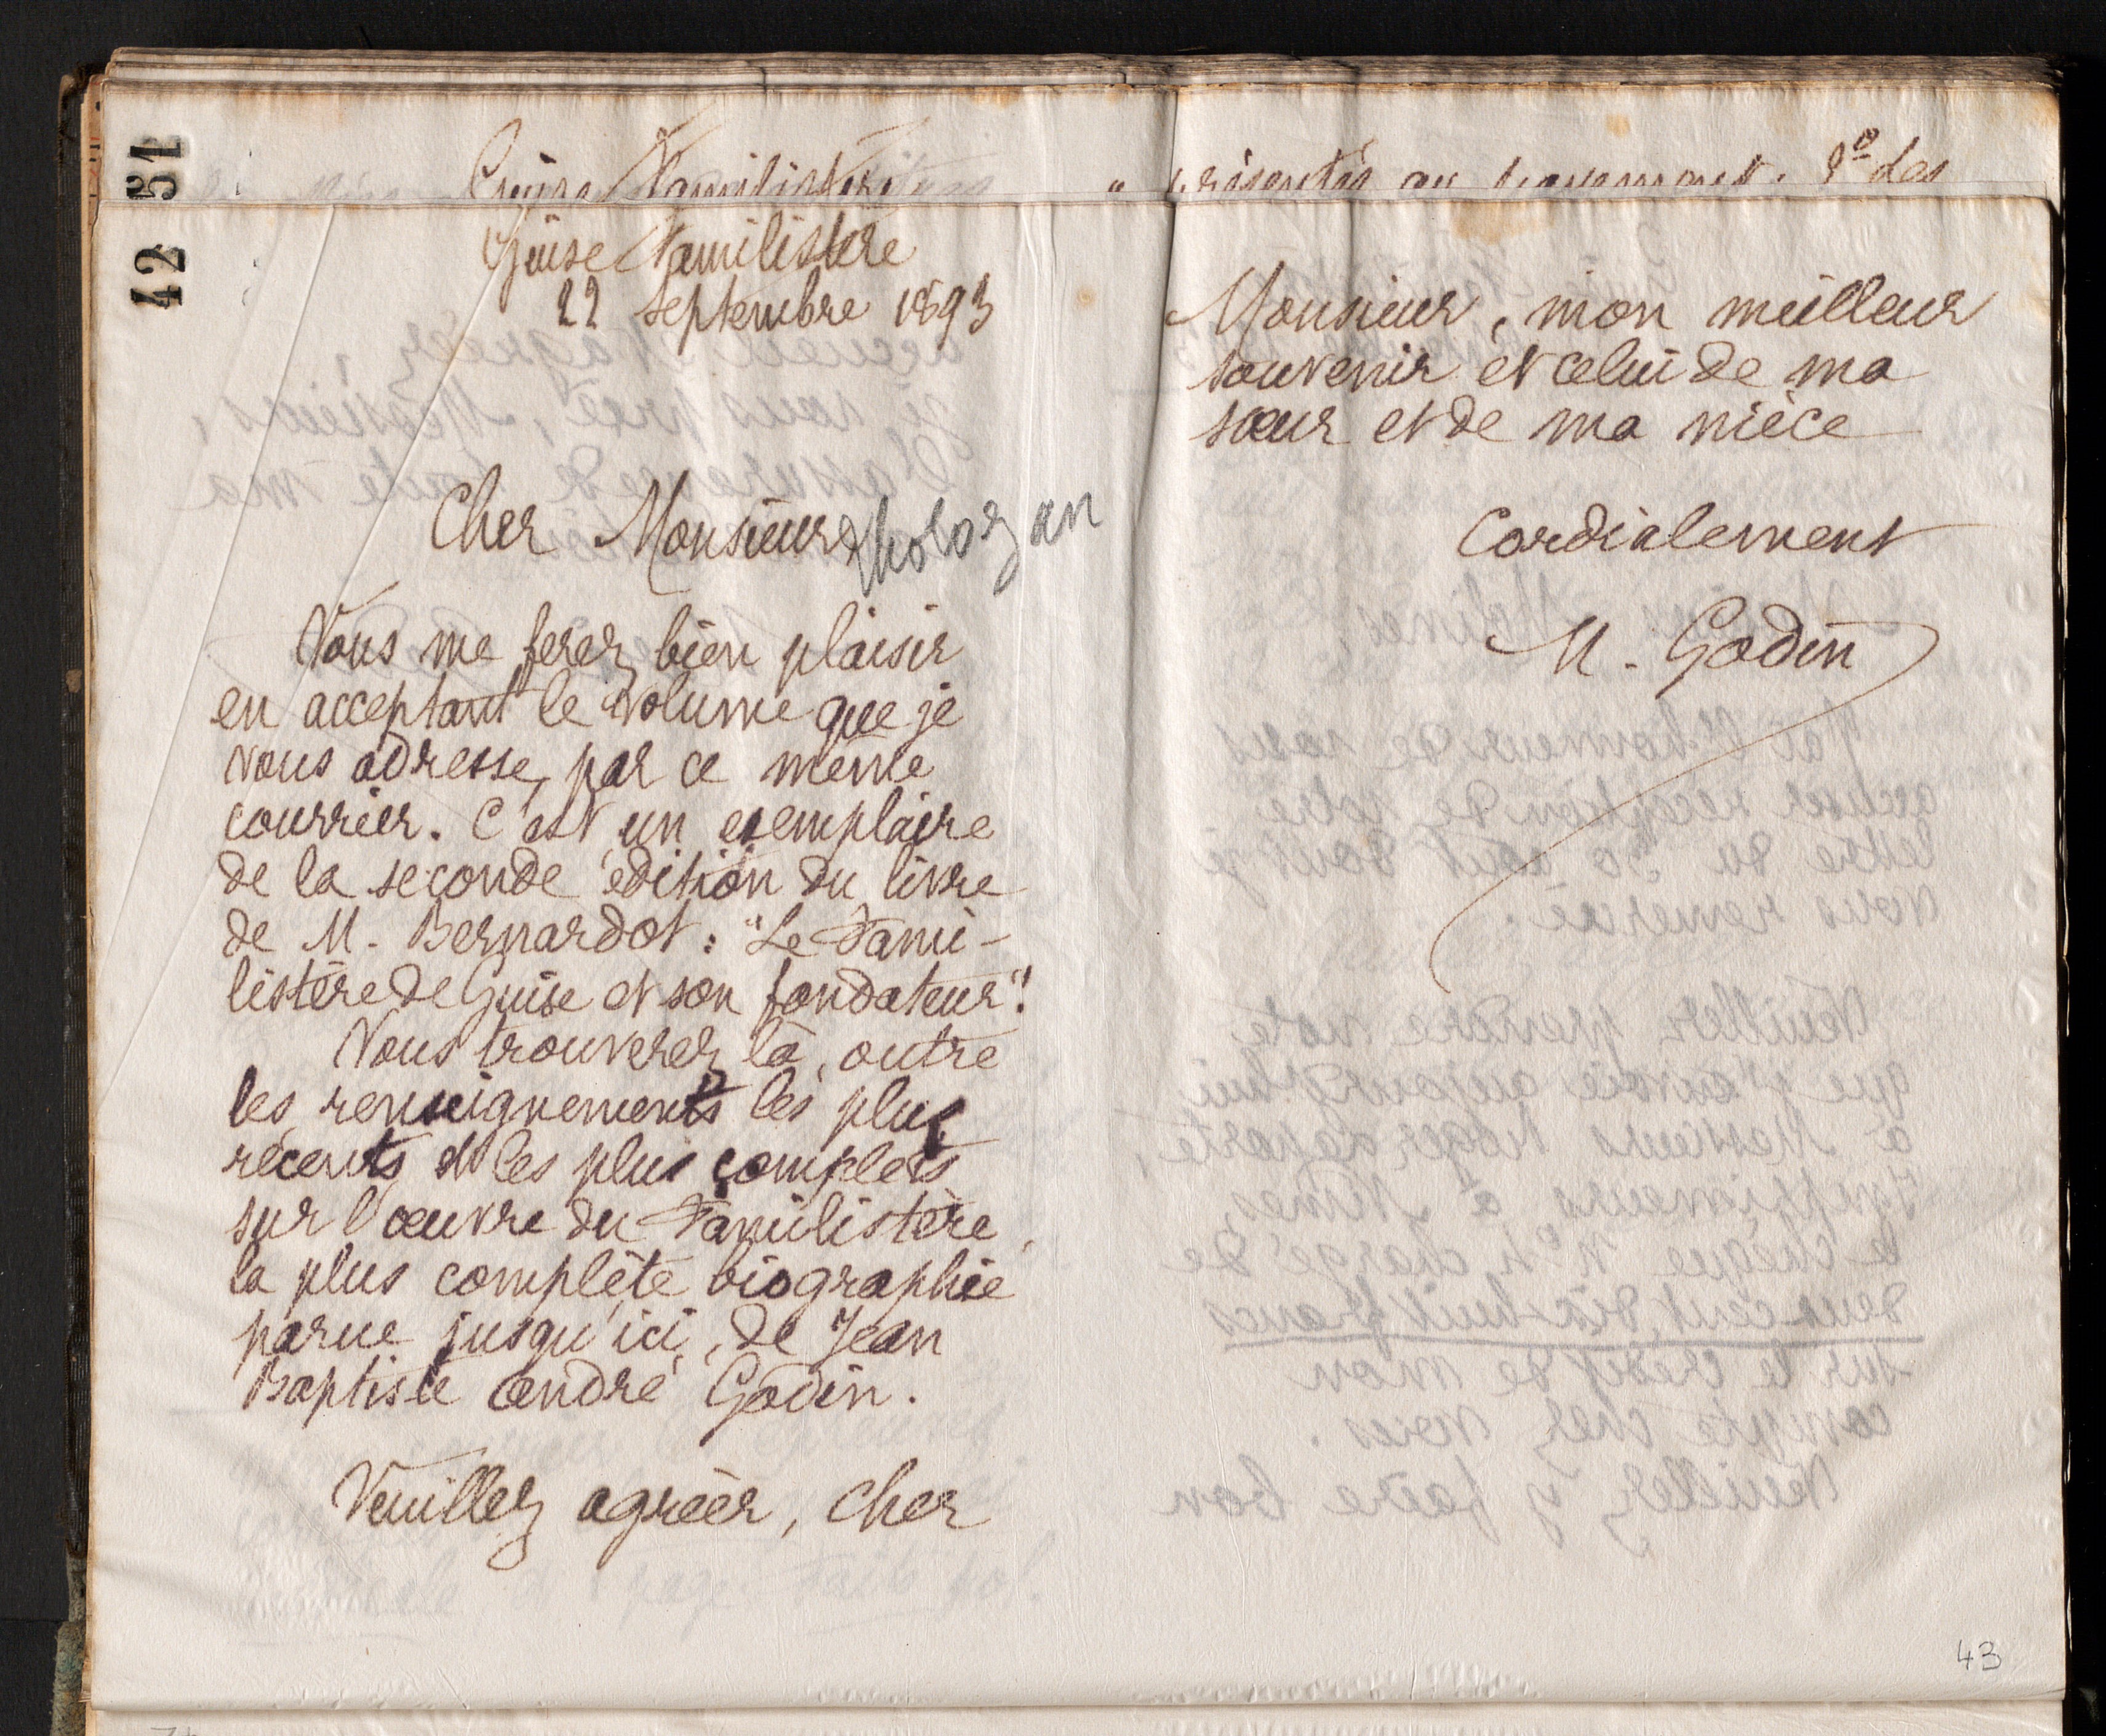 51
42
Guise Familistère
présentés au 2º Les
Guise Familistère
22 septembre 1893
Cher Monsieur dholozan
Vous me ferez bien plaisir
en acceptant le volume que je
vous adresse, par ce même
courrier. C'est un exemplaire
de la seconde édition du livre
de M. Bernardot : "Le Fami-
listère de Guise et son fondateur".
Vous trouverez là, outre
les renseignements les plus
récents et les plus complets
sur l'œuvre du Familistère,
la plus complète biographie
parue jusqu'ici, de Jean
Baptiste André Godin.
Veuillez agréer, cher
Monsieur, mon meilleur
souvenir et celui de ma
sœur et de ma nièce
Cordialement
M. Godin
43